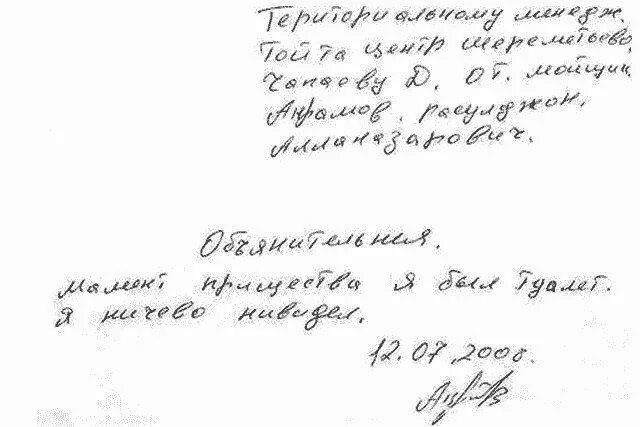 Териториальному менедж.
Тойта центр шереметьево,
Чапаеву Д. от. мойщик
Акрамов. расулджон.
Алланазарович.
Объянительния.
мамент прищества я был туалет.
я ничево нивидел.
12.07.2008.